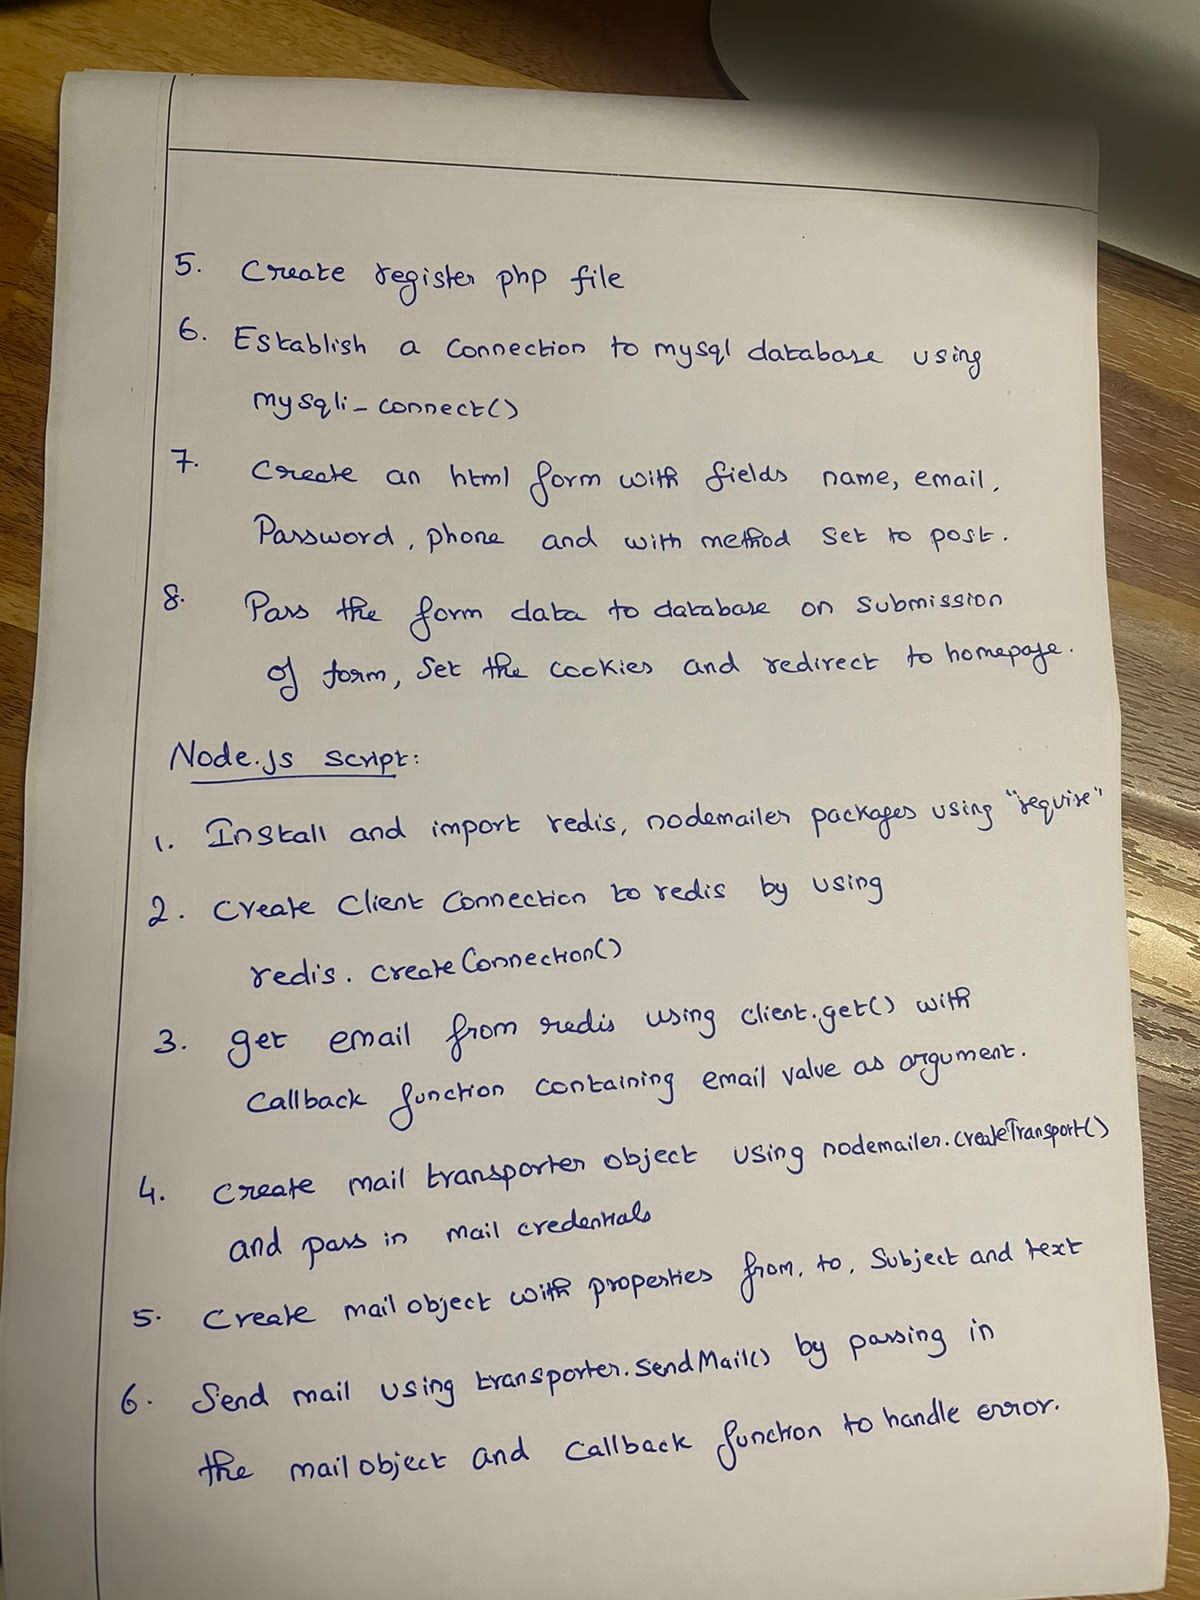 5. Create register php file
6. Establish a connection to mysql database using
mysqli_connect()
7. Create an html form with fields name, email,
Password, phone and with method set to post.
8. Pass the form data to database on submission
of form, set the cookies and redirect to homepage.
Node.js script:
1. Install and import redis, nodemailer packages using "require"
2. Create client connection to redis by using
redis.createConnection()
3. get email from redis using client.get() with
callback function containing email value as argument.
4. Create mail transporter object using nodemailer.createTransport()
and pass in mail credentials
5. Create mail object with properties from, to, subject and text
6. Send mail using transporter.sendMail() by passing in
the mail object and callback function to handle error.